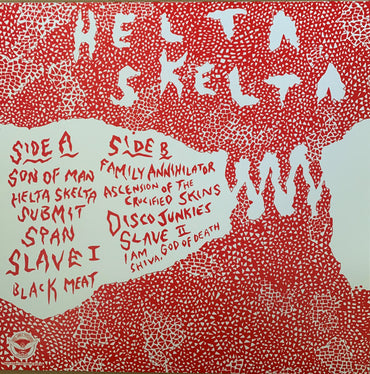 HELTA
SKELTA
SIDE A
SON OF MAN
HELTA SKELTA
SUBMIT
SPAN
SLAVE I
BLACK MEAT
SIDE B
FAMILY ANNIHILATOR
ASCENSION OF THE
CRUCIFIED SKINS
DISCO JUNKIES
SLAVE II
I AM
SHIVA, GOD OF DEATH